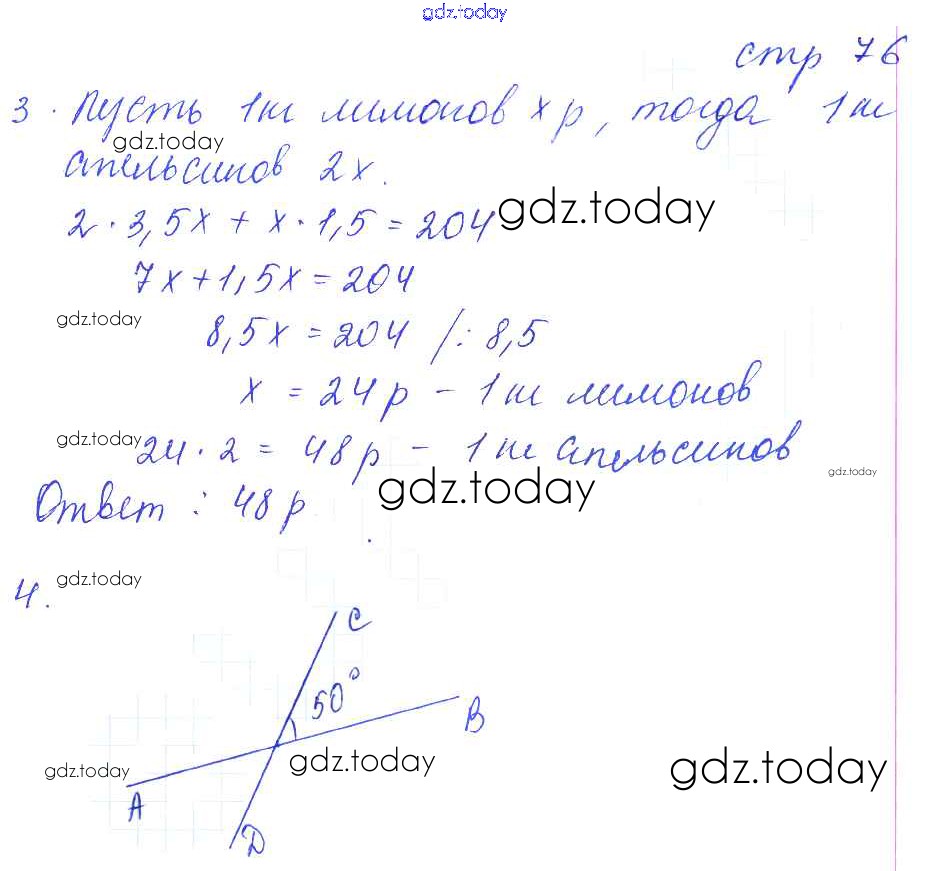 gdz.today
стр 76
3. Пусть 1кг лимонов x р, тогда 1кг
gdz.today
апельсинов 2x.
2·3,5x + x·1,5 = 204
gdz.today
7x + 1,5x = 204
gdz.today
8,5x = 204 /: 8,5
x = 24 р – 1кг лимонов
gdz.today
24·2 = 48р – 1кг апельсинов
gdz.today
Ответ: 48 р.
gdz.today
4.
gdz.today
C
50°
B
gdz.today
gdz.today
gdz.today
A
D